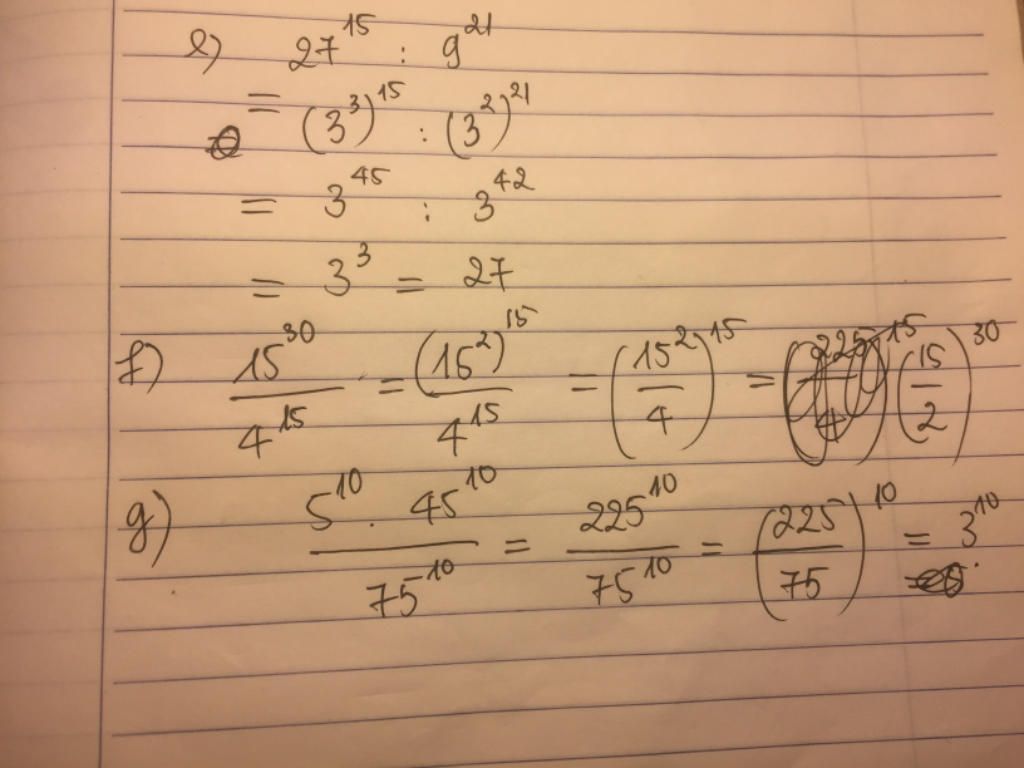 e) 27^15 : 9^21
= (3^3)^15 : (3^2)^21
= 3^45 : 3^42
= 3^3 = 27
f) 15^30 / 4^15 = (15^2)^15 / 4^15 = (15^2 / 4)^15 = (15 / 2)^30
g) 5^10 . 45^10 / 75^10 = 225^10 / 75^10 = (225 / 75)^10 = 3^10